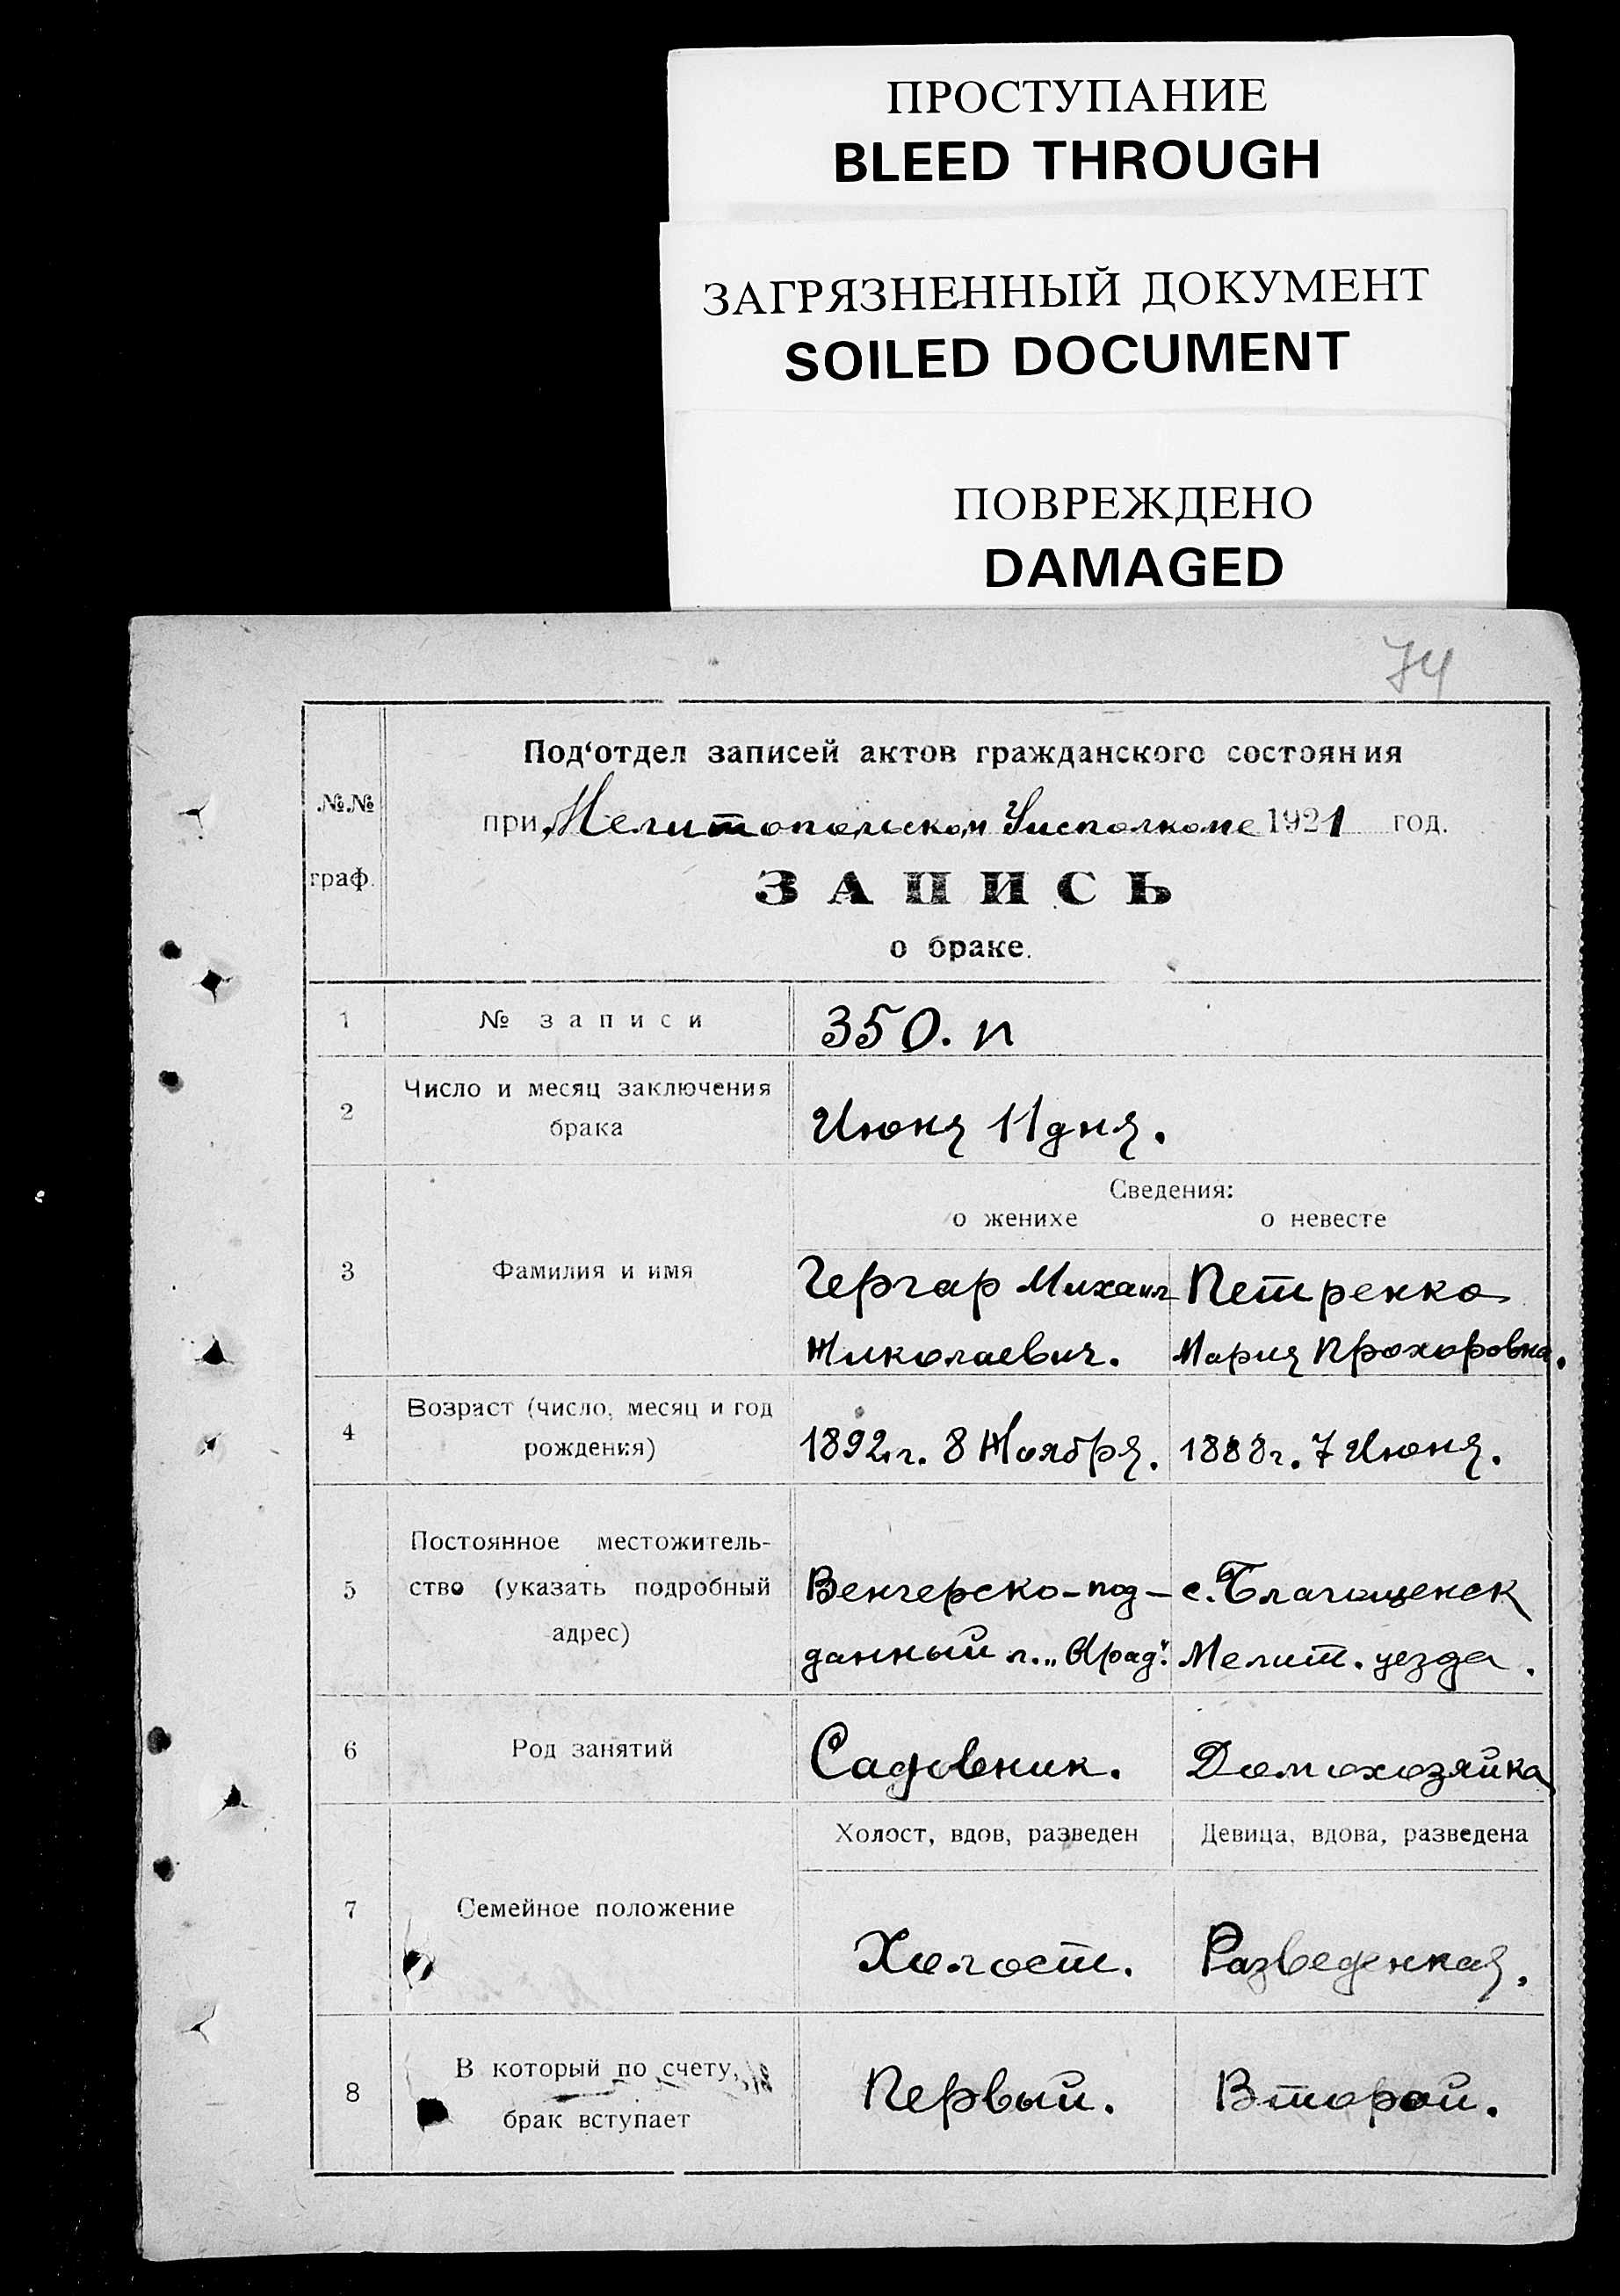 ПРОСТУПАНИЕ
BLEED THROUGH
ЗАГРЯЗНЕННЫЙ ДОКУМЕНТ
SOILED DOCUMENT
ПОВРЕЖДЕНО
DAMAGED
74
Под‘отдел записей актов гражданского состояния
№№
при Мелитопольском Уисполкоме 1921 год.
граф.
ЗАПИСЬ
о браке.
1 № записи 350. п
2 Число и месяц заключения
брака
Июня 11 дня.
Сведения:
о женихе о невесте
3 Фамилия и имя
Гергар Михаил Петренко
Николаевич. Мария Прохоровна.
4 Возраст (число, месяц и год
рождения)
1892 г. 8 Ноября. 1888 г. 7 Июня.
5 Постоянное местожитель-
ство (указать подробный
адрес)
Венгерско-под- с. Благощенск
данный г. „Арад“. Мелит. уезда.
6 Род занятий Садовник. Домохозяйка
Холост, вдов, разведен Девица, вдова, разведена
7 Семейное положение
Холост. Разведенная.
8 В который по счету,
брак вступает
Первый. Второй.